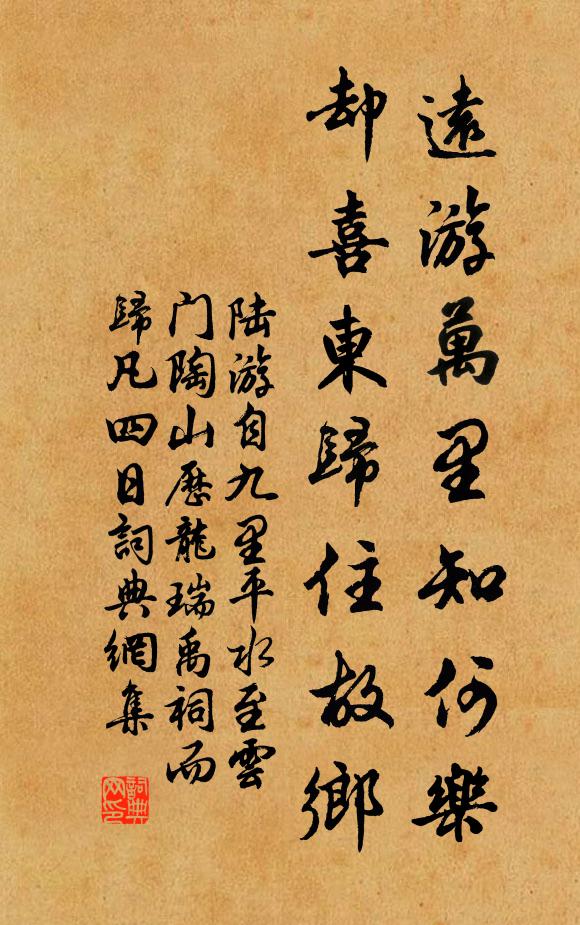 遠游萬里知何樂
却喜東歸住故鄉
陆游自九里平水至雲
门陶山歷龍瑞禹祠而
歸凡四日詞典網集
詞典
网印